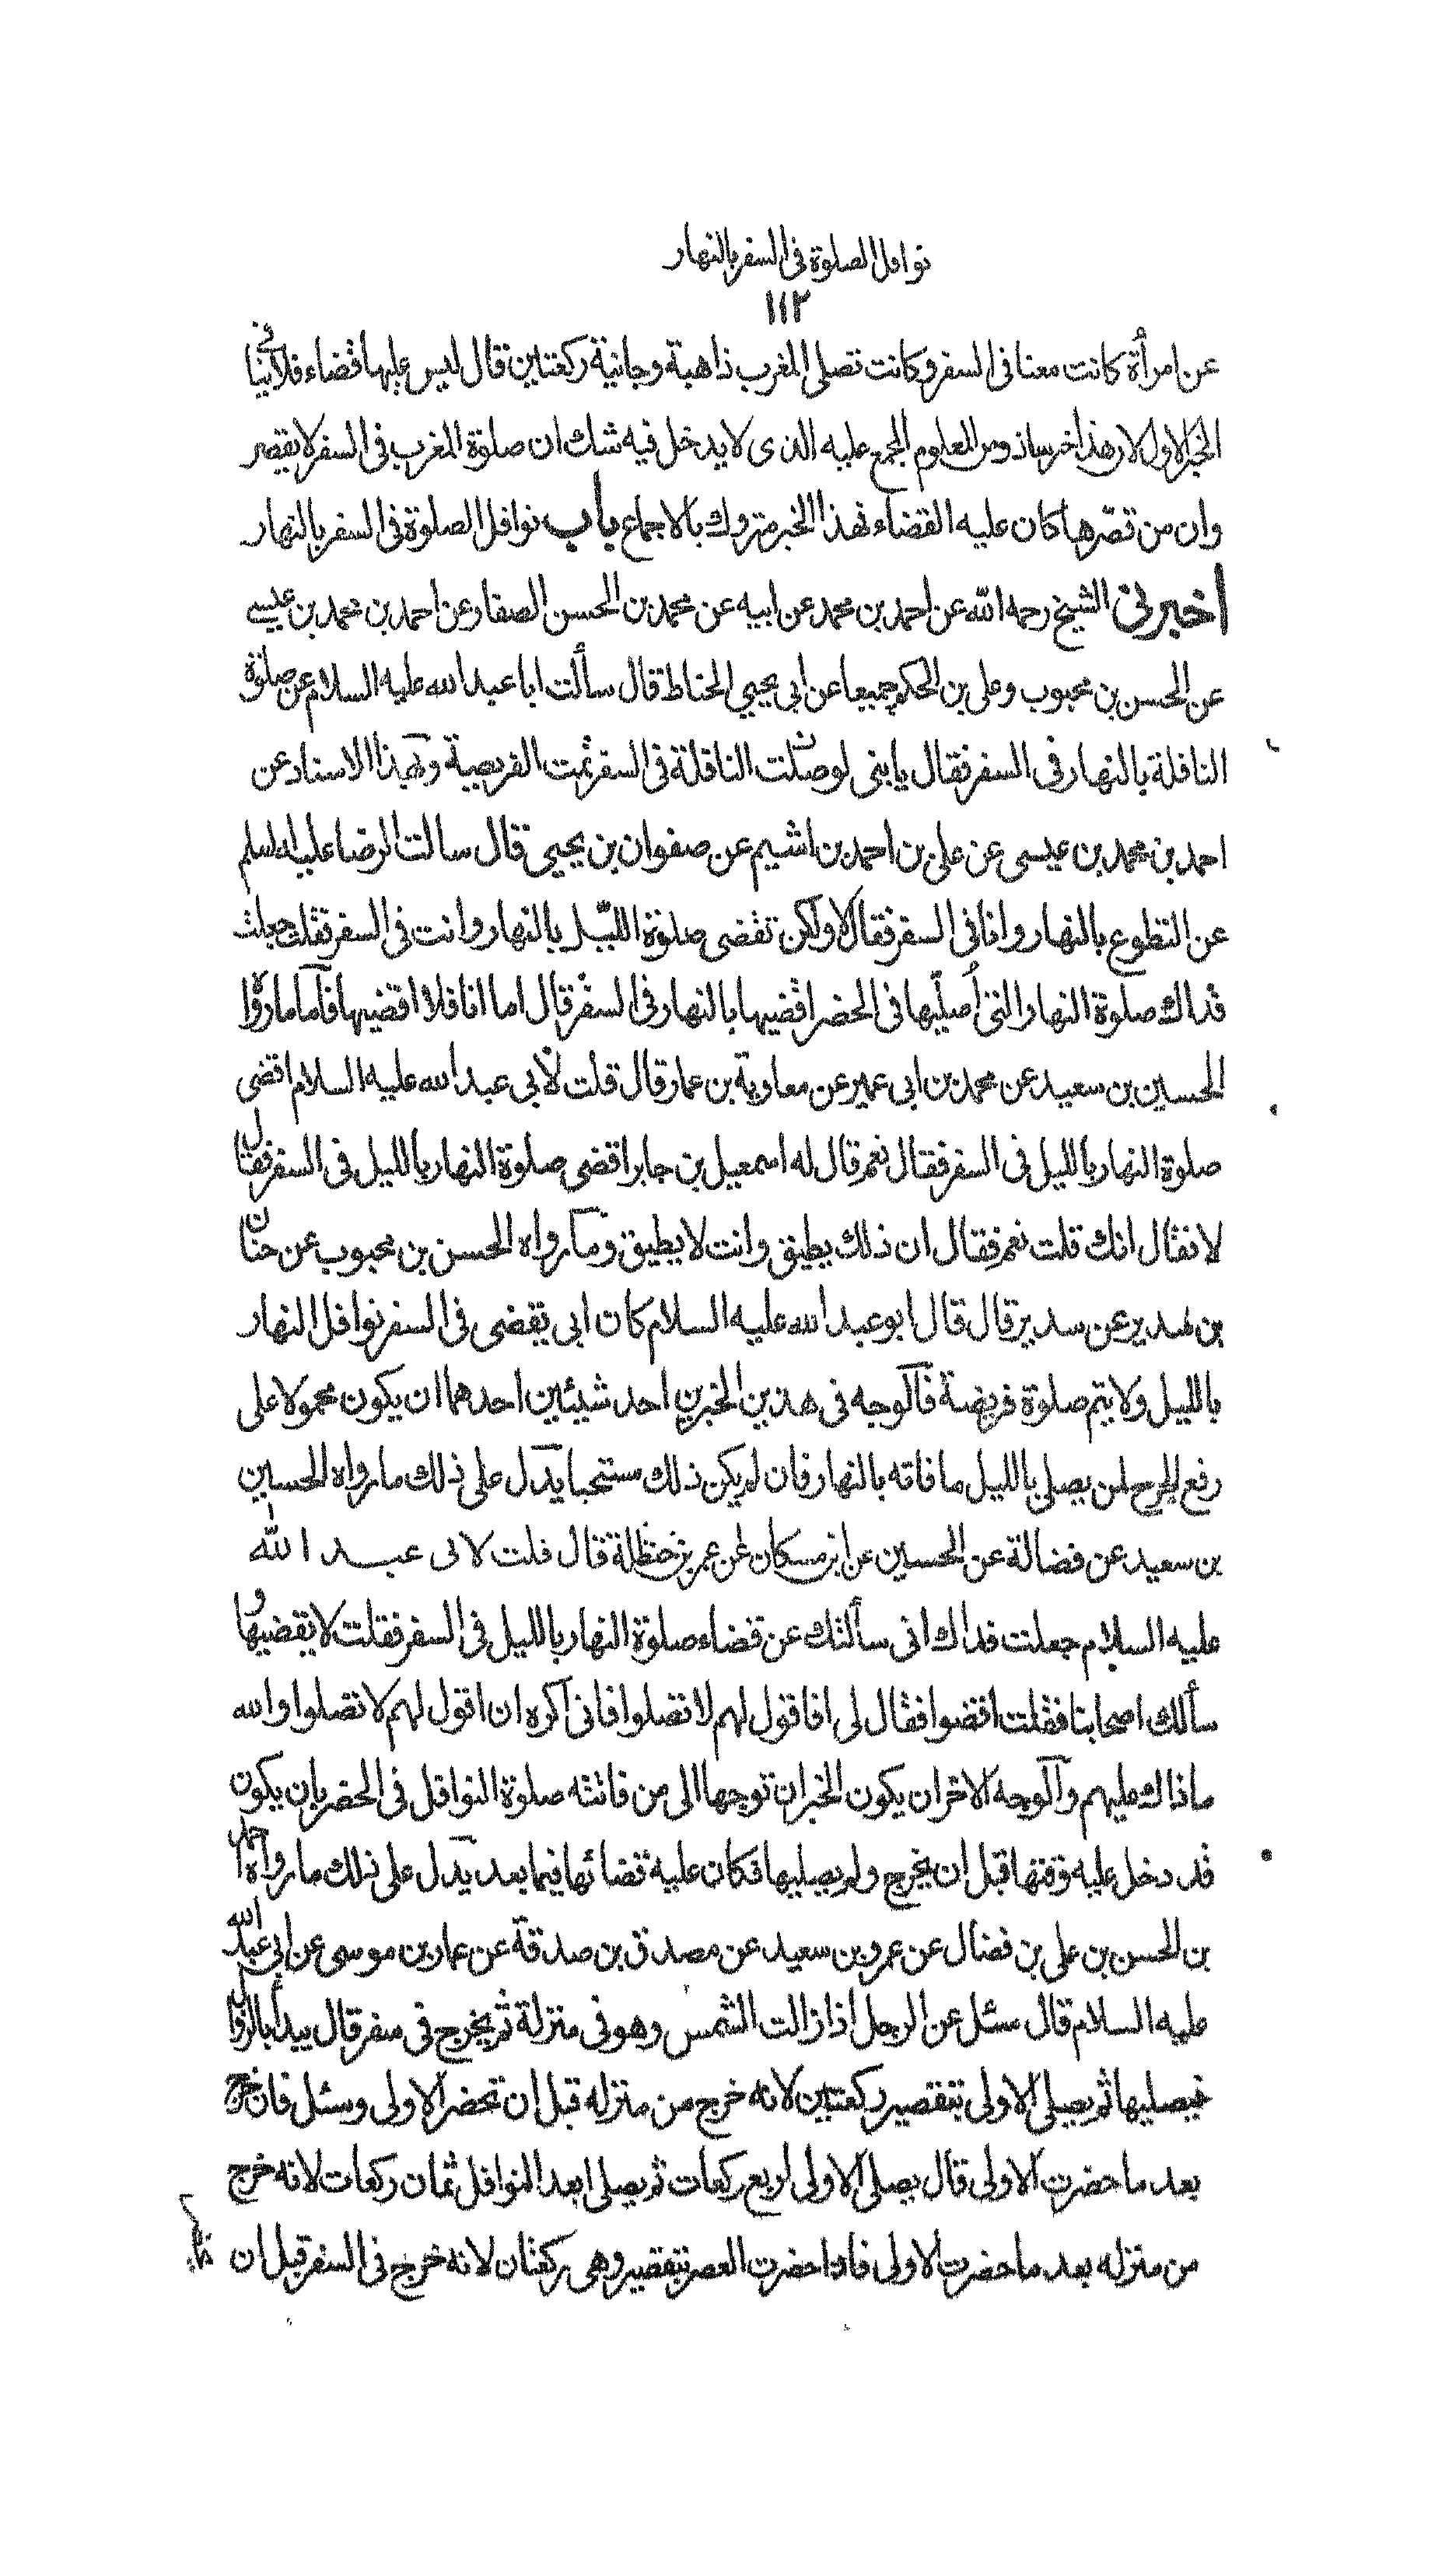 نوافل الصلوة فى السفر بالنهار
١١٣
عن امرأة كانت معنا فى السفر وكانت تصلى المغرب ذاهبة وجائية ركعتين قال ليس عليها قضاء فلا ينافى
الخبر الاول لان هذا خبر شاذ ومن المعلوم المجمع عليه الذى لا يدخل فيه شك ان صلوة المغرب فى السفر لا يقصر
وان من قصّرها كان عليه القضاء فهذا الخبر متروك بالاجماع باب نوافل الصلوة فى السفر بالنهار
أخبرنى الشيخ رحمه الله عن احمد بن محمد عن ابيه عن محمد بن الحسن الصفار عن احمد بن محمد بن عيسى
عن الحسن بن محبوب وعلى بن الحكم جميعا عن ابى يحيى الحناط قال سألت ابا عبد الله عليه السلام عن صلوة
النافلة بالنهار فى السفر فقال يا بنى لو صلحت النافلة فى السفر تمت الفريضة وبهذا الاسناد عن
احمد بن محمد بن عيسى عن على بن احمد بن اشيم عن صفوان بن يحيى قال سالت الرضا عليه السلم
عن التطوع بالنهار وانا فى السفر فقال لا ولكن تقضى صلوة الليل بالنهار وانت فى السفر فقلت جعلت
فداك صلوة النهار التى أصلّيها فى الحضر اقضيها بالنهار فى السفر قال اما انا فلا اقضيها فاما ما رواه
الحسين بن سعيد عن محمد بن ابى عمير عن معاوية بن عمار قال قلت لأبى عبد الله عليه السلام اقضى
صلوة النهار بالليل فى السفر فقال نعم قال له اسمعيل بن جابر اقضى صلوة النهار بالليل فى السفر فقال
لا فقال انك قلت نعم فقال ان ذلك يطيق وانت لا يطيق وما رواه الحسن بن محبوب عن حنان
بن سدير عن سدير قال قال ابو عبد الله عليه السلام كان ابى يقضى فى السفر نوافل النهار
بالليل ولا يتم صلوة فريضة فالوجه فى هذين الخبرين احد شيئين احدهما ان يكون محمولا على
رفع الحرج لمن يصلى بالليل ما فاته بالنهار فان لم يكن ذلك مستحبا يدل على ذلك ما رواه الحسين
بن سعيد عن فضالة عن الحسين عن ابن مسكان عن عمر بن حنظلة قال قلت لابى عبد الله
عليه السلام جعلت فداك انى سألتك عن قضاء صلوة النهار بالليل فى السفر فقلت لا يقضيها و
سألك اصحابنا فقلت اقضوا فقال لى افاقول لهم لا تصلوا فانى اكره ان اقول لهم لا تصلوا والله
ما ذاك عليهم والوجه الاخر ان يكون الخبران توجها الى من فاتته صلوة النوافل فى الحضر بان يكون
قد دخل عليه وقتها قبل ان يخرج ولم يصليها فكان عليه قضائها فيما بعد يدل على ذلك ما رواه احمد
بن الحسن بن على بن فضال عن عمرو بن سعيد عن مصدق بن صدقة عن عمار بن موسى عن ابى عبد الله
عليه السلام قال سئل عن الرجل اذا زالت الشمس وهو فى منزلة ثم يخرج فى سفر قال يبدأ بالزوال
فيصليها ثم يصلى الاولى بتقصير ركعتين لانه خرج من منزله قبل ان تحضر الاولى وسئل فان خرج
بعد ما حضرت الاولى قال يصلى الاولى اربع ركعات ثم يصلى بعد النوافل ثمان ركعات لانه خرج
من منزله بعد ما حضرت الاولى فاذا حضرت العصر بتقصير وهى ركعتان لانه خرج فى السفر قبل ان